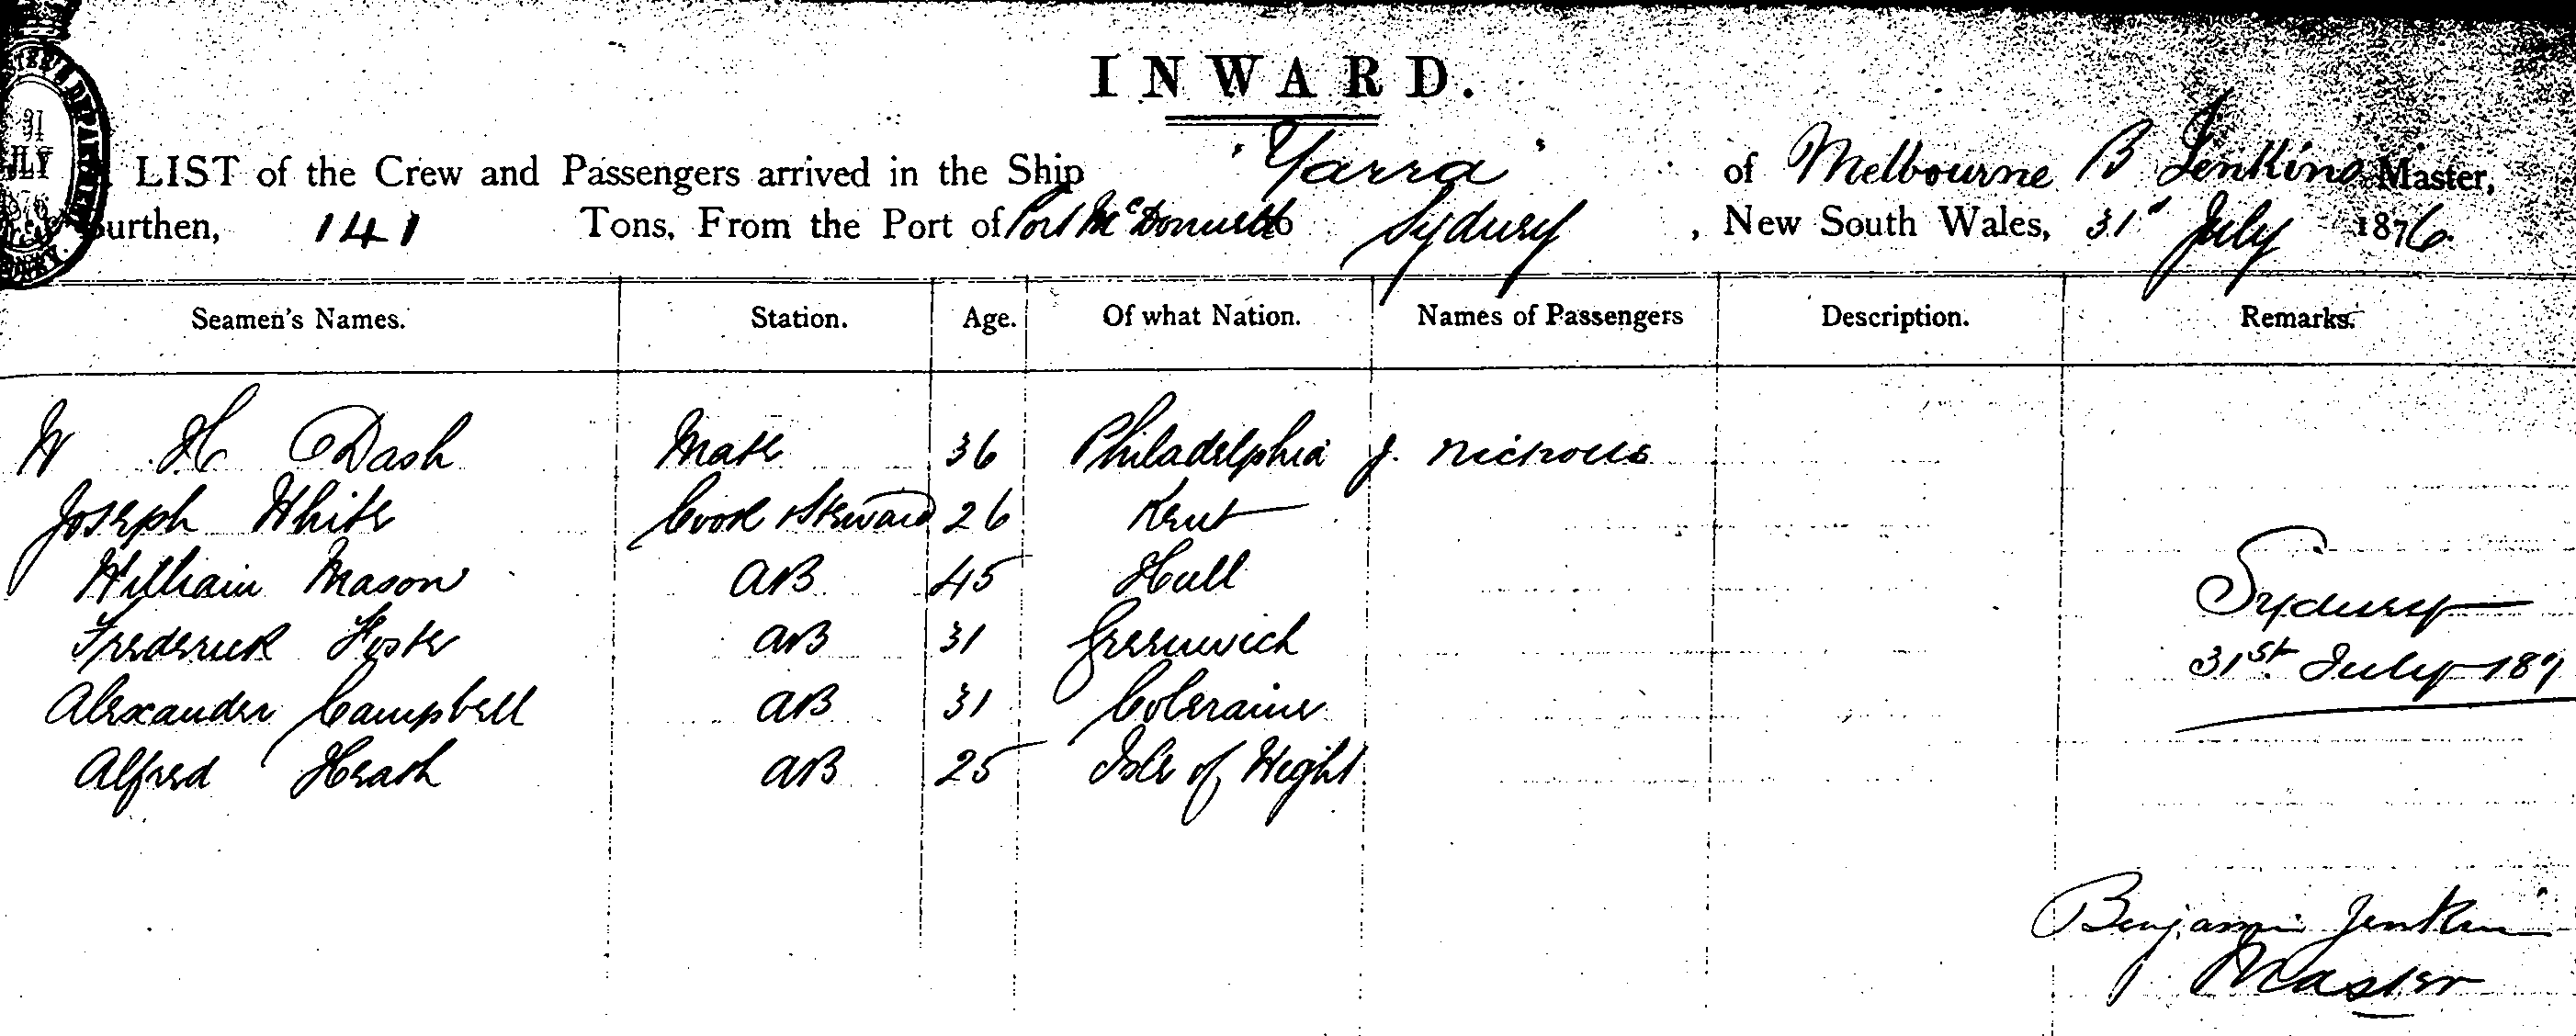 INWARD.
LIST of the Crew and Passengers arrived in the Ship "Yarra" of Melbourne B Jenkins Master,
Burthen, 141 Tons, From the Port of Port McDonnell to Sydney, New South Wales, 31st July 1876.
Seamen's Names. Station. Age. Of what Nation. Names of Passengers Description. Remarks.
W H Dash Mate 36 Philadelphia J. Nicholls
Joseph White Cook & Steward 26 Kent
William Mason AB 45 Hull
Frederick Foster AB 31 Greenwich
Alexander Campbell AB 31 Coleraine
Alfred Heath AB 25 Isle of Wight
Sydney
31st July 187
Benjamin Jenkins
Master
31
JULY
1876